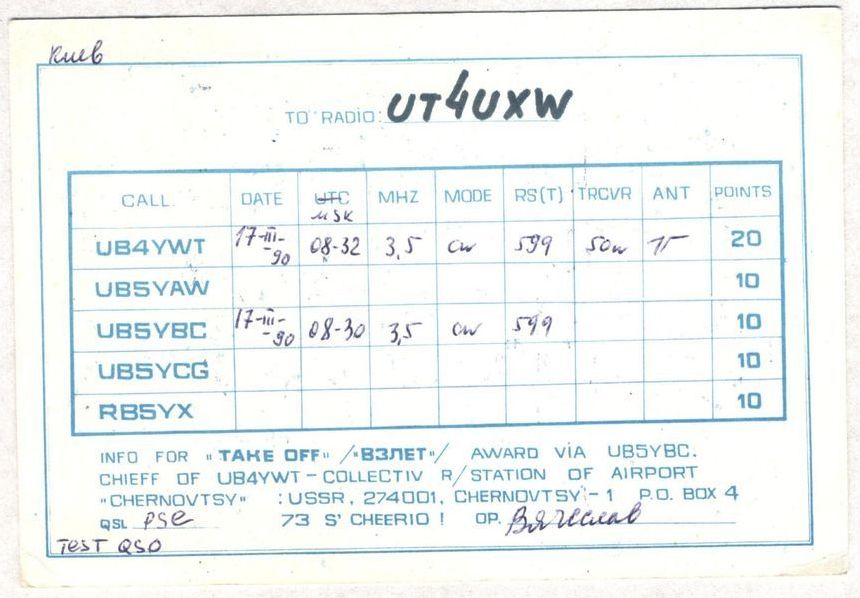 Киев
TO RADIO: UT4UXW
CALL DATE UTC MHZ MODE RS(T) TRCVR ANT POINTS
MSK
UB4YWT 17-III-90 08-32 3,5 CW 599 50w 20
UB5YAW 10
UB5YBC 17-III-90 08-30 3,5 CW 599 10
UB5YCG 10
RB5YX 10
INFO FOR "TAKE OFF" /"ВЗЛЕТ"/ AWARD VIA UB5YBC.
CHIEFF OF UB4YWT - COLLECTIV R/STATION OF AIRPORT
"CHERNOVTSY" : USSR, 274001, CHERNOVTSY - 1 P.O. BOX 4
QSL PSE 73 S' CHEERIO ! OP. Вячеслав
TEST QSO